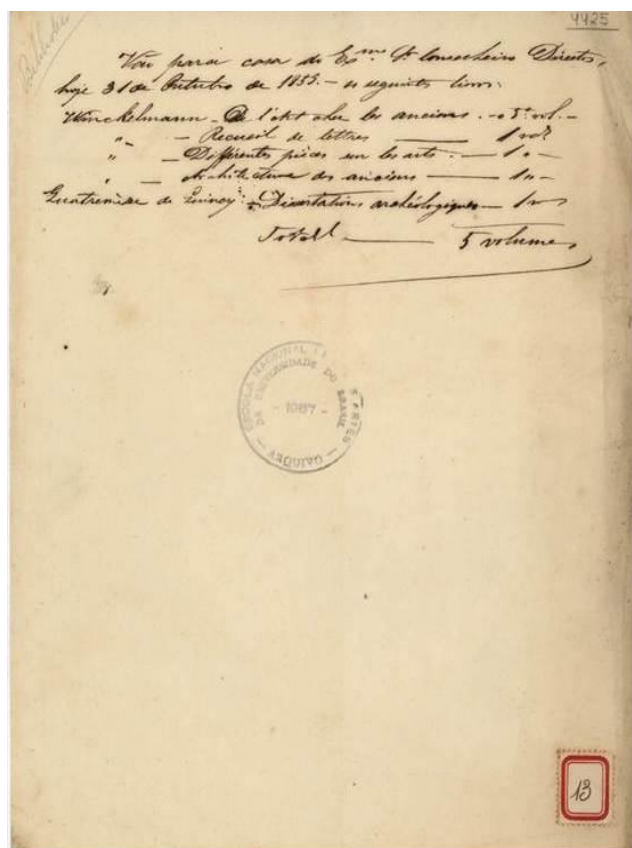 4425
Vou para casa do Exmo Sr Conselheiro Director,
hoje 31 de Outubro de 1855. — os seguintes livros:
Winckelmann — De l'Art chez les anciens. — o 3º vol. —
" — Recueil de lettres — 1 vol
" — Différentes pièces sur les arts. — 1 " —
" — Architecture des anciens — 1 " —
Quatremère de Quincy: — Dissertations archéologiques — 1 "
Total — 5 volumes
ESCOLA NACIONAL DE BELAS ARTES
DA UNIVERSIDADE DO BRASIL
- 1957 -
— ARQUIVO —
13